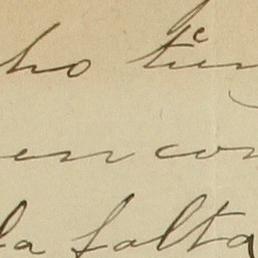 ho tien
en con
la falta